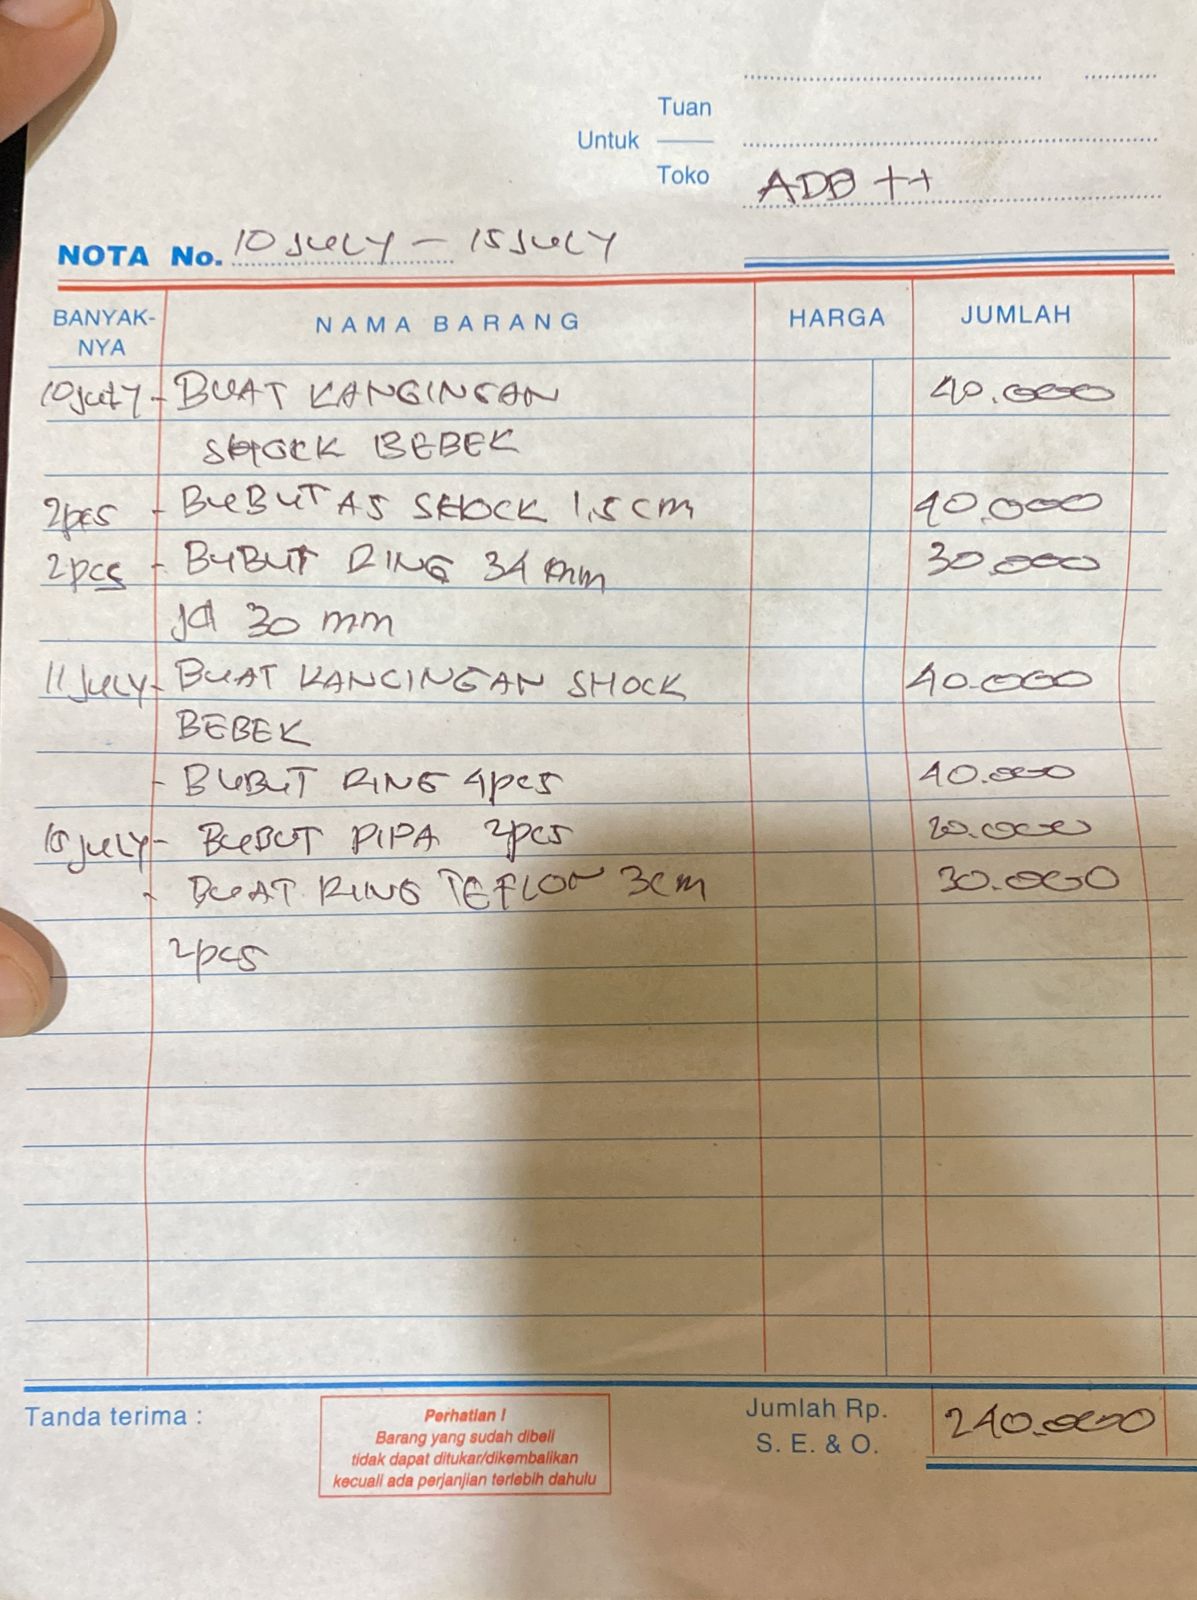 Tuan
Untuk
Toko ADB ++
NOTA No. 10 JULY - 15 JULY
BANYAK-NYA NAMA BARANG HARGA JUMLAH
10 july - BUAT KANGINGAN 40.000
SHOCK BEBEK
2pcs - BUBUT AS SHOCK 1,5 cm 40.000
2pcs - BUBUT RING 34 mm 30.000
jd 30 mm
11 JULY - BUAT KANCINGAN SHOCK 40.000
BEBEK
- BUBUT RING 4pcs 40.000
15 JULY - BUBUT PIPA 2pcs 20.000
- BUAT RING TEFLON 3cm 30.000
2pcs
Tanda terima :
Perhatian !
Barang yang sudah dibeli
tidak dapat ditukar/dikembalikan
kecuali ada perjanjian terlebih dahulu
Jumlah Rp. 240.000
S. E. & O.